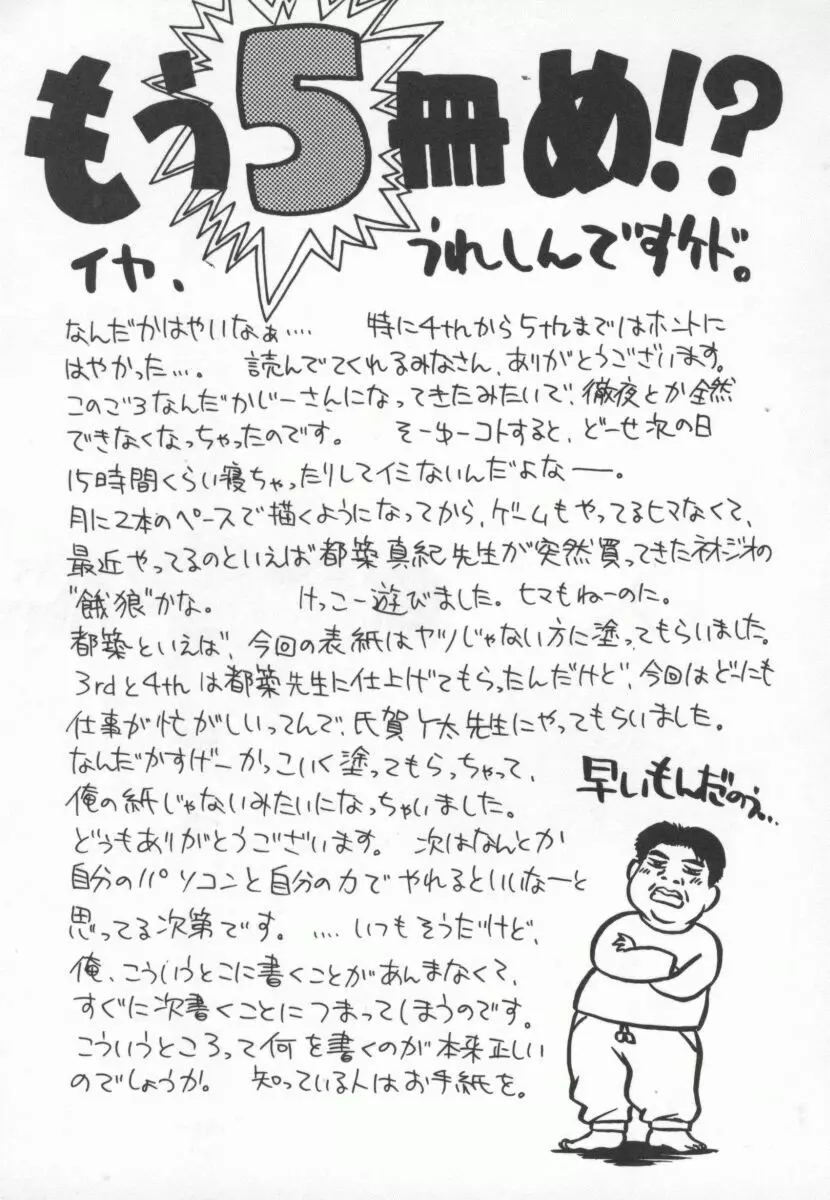 もう5冊め!?
イヤ、うれしんですケド。
なんだかはやいなぁ…. 特に4thから5thまではホントに
はやかった…。 読んでてくれるみなさん、ありがとうございます。
このごろなんだかじーさんになってきたみたいで、徹夜とか全然
できなくなっちゃったのです。 そーゆーコトすると、どーせ次の日
15時間くらい寝ちゃったりしてイミないんだよなー。
月に2本のペースで描くようになってから、ゲームもやってるヒマなくて、
最近やってるのといえば都築真紀先生が突然買ってきたネオジオの
"餓狼"かな。 けっこー遊びました。ヒマもねーのに。
都築といえば、今回の表紙はヤツじゃない方に塗ってもらいました。
3rdと4thは都築先生に仕上げてもらったんだけど、今回はどーにも
仕事が忙がしいってんで、氏賀Y太先生にやってもらいました。
なんだかすげーかっこいく塗ってもらっちゃって、
俺の紙じゃないみたいになっちゃいました。
どうもありがとうございます。 次はなんとか
自分のパソコンと自分の力でやれるといいなーと
思ってる次第です。 …. いつもそうだけど、
俺、こういうとこに書くことがあんまなくて、
すぐに次書くことにつまってしまうのです。
こういうところって何を書くのが本来正しい
のでしょうか。 知っている人はお手紙を。
早いもんだのう…